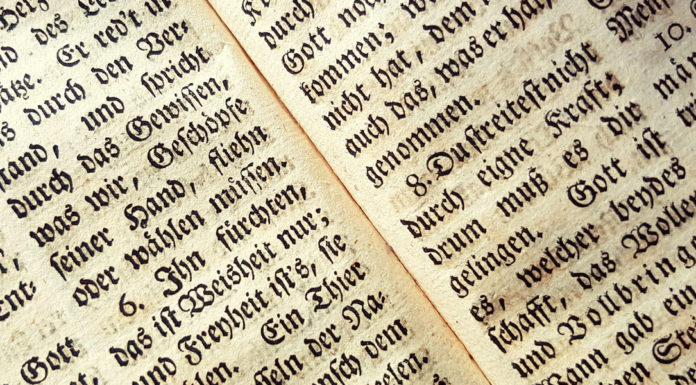 des
Er red't
durch den Ver-
und spricht
durch das Gewissen,
was wir, Geschöpfe
seiner Hand, fliehn
oder wählen müssen.
6. Ihn fürchten,
Gott das ist Weisheit nur;
und Freyheit ist's, sie
Ein Thier
der Na-
dem
durch
Gott
kommen;
nicht hat, dem
auch das, was er hat,
genommen.
8. Du streitest nicht
durch eigne Kraft;
drum muß es dir
gelingen. Gott ist
es, welcher beydes
schafft, das Wollen
und Vollbringen.
Wann gab ein
10.